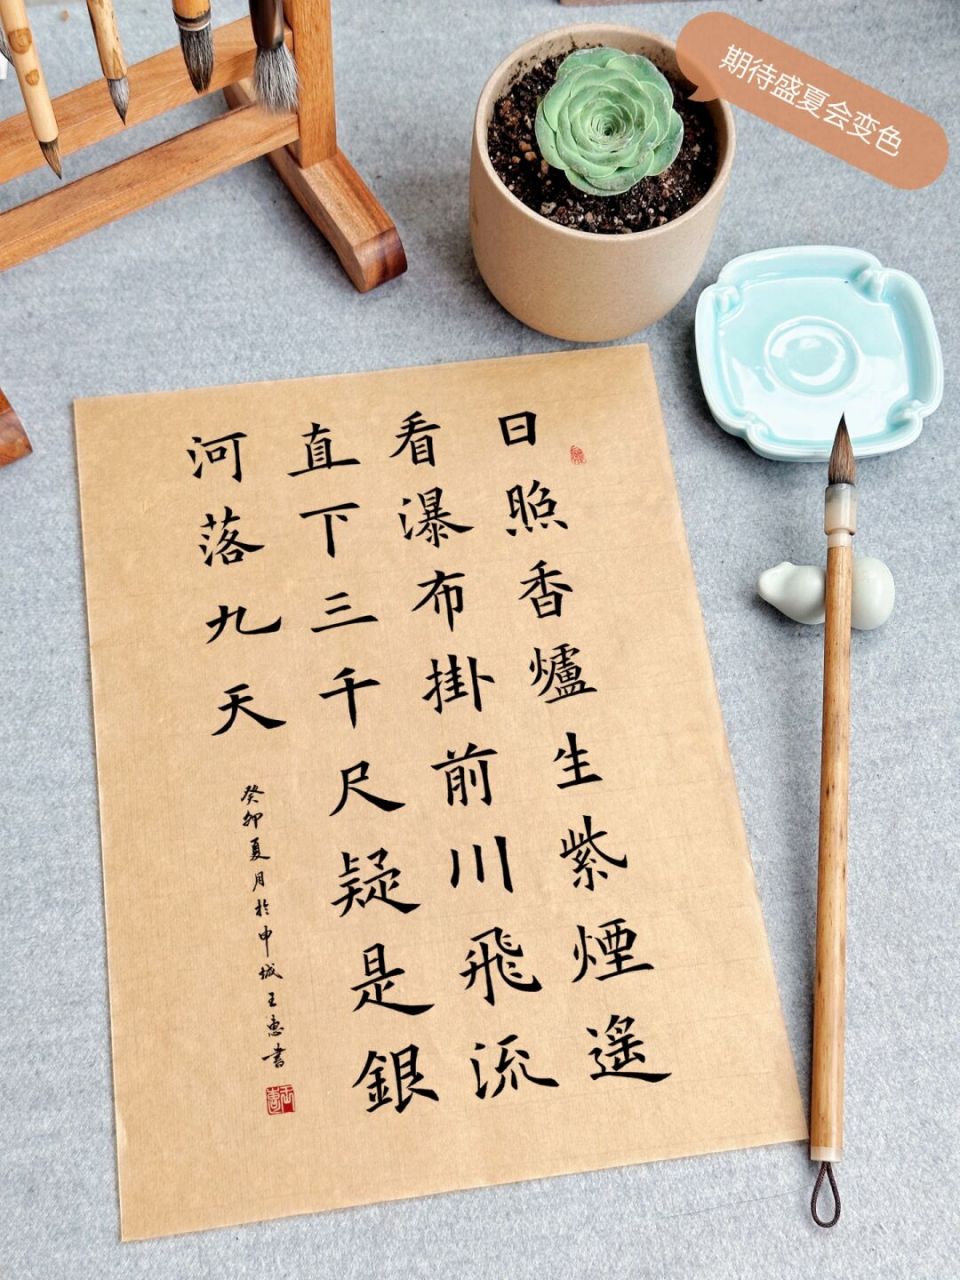 期待盛夏会变色
日照香爐生紫煙遥
看瀑布掛前川飛流
直下三千尺疑是銀
河落九天
癸卯夏月於申城王惠書